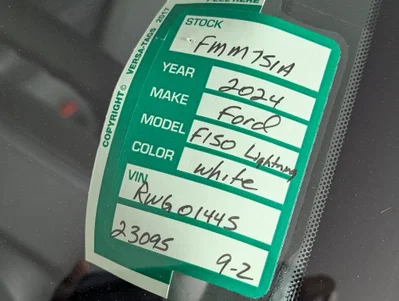 PEEL HERE
COPYRIGHT© VERSA-TAGS 2017
STOCK
FMM751A
YEAR
2024
MAKE
Ford
MODEL
F150 Lightning
COLOR
White
VIN
RWG01445
23095
9-2